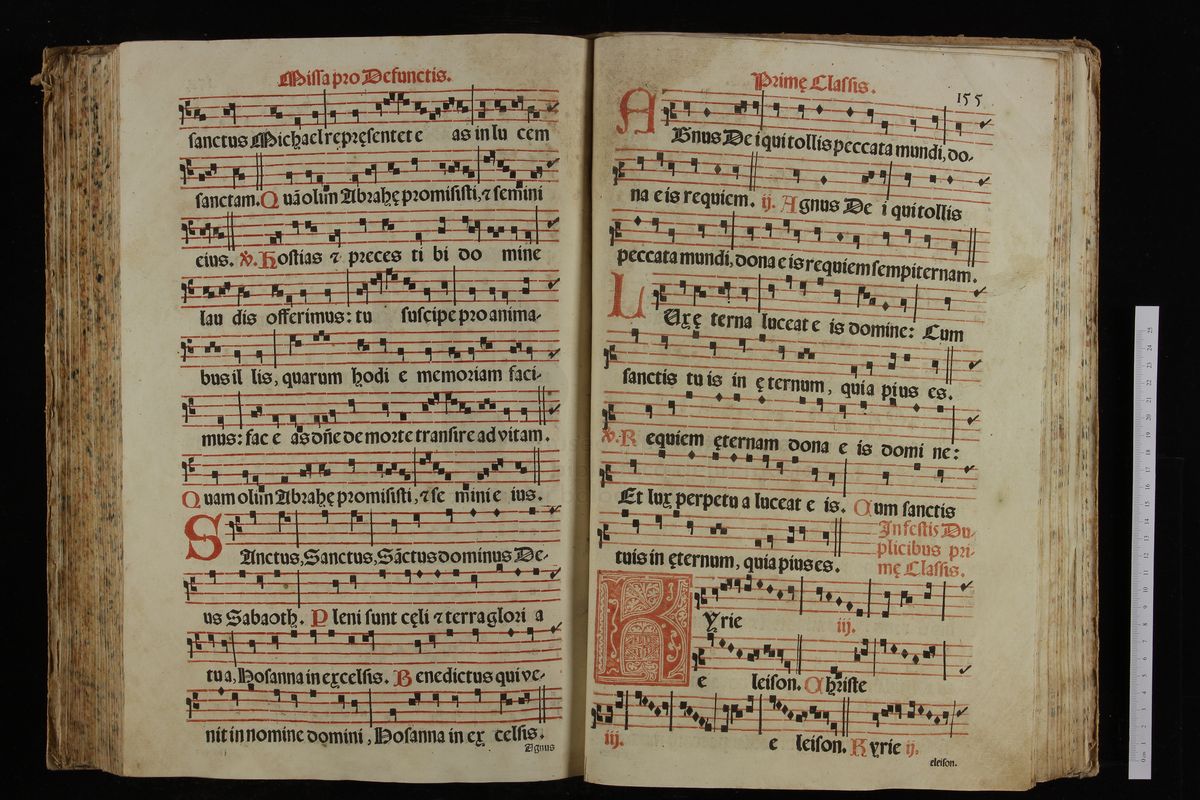 Missa pro Defunctis.
sanctus Michael repręsentet e as in lu cem
sanctam. Quã olim Abrahę promisisti, ⁊ semini
eius. ℣. Hostias ⁊ preces ti bi do mine
lau dis offerimus: tu suscipe pro anima-
bus il lis, quarum hodi e memoriam faci-
mus: fac e as dñe de morte transire ad vitam.
Quam olim Abrahę promisisti, ⁊ se mini e ius.
SAnctus, Sanctus, Sãctus dominus De-
us Sabaoth. Pleni sunt cęli ⁊ terra glori a
tu a, Hosanna in excelsis. Benedictus qui ve-
nit in nomine domini, Hosanna in ex celsis.
Agnus
Primę Classis.
155
AGnus De i qui tollis peccata mundi, do-
na e is requiem. ij. Agnus De i qui tollis
peccata mundi, dona e is requiem sempiternam.
LUx ę terna luceat e is domine: Cum
sanctis tu is in ę ternum, quia pius es.
℣. Requiem ęternam dona e is domi ne:
Et lux perpetu a luceat e is. Cum sanctis
tuis in ęternum, quia pius es.
In festis Du-
plicibus pri-
mę Classis.
KYrie iij.
e leison. Christe
iij. e leison. Kyrie ij.
eleison.